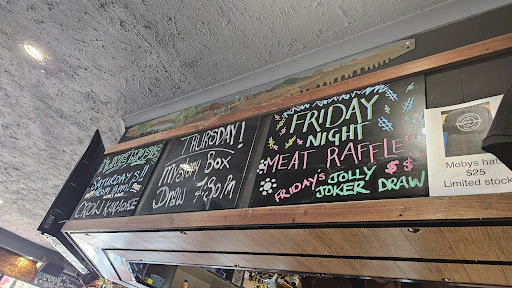 SATURDAY'S!!
CROW KARAOKE
THURSDAY!
MYSTERY BOX
DRAW 4:30PM
FRIDAY
NIGHT
MEAT RAFFLES
FRIDAY'S JOLLY $$
JOKER DRAW
Mobys hat
$25
Limited stock